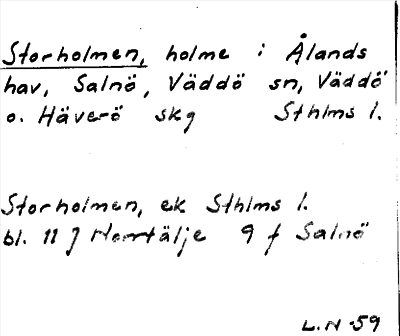 Storholmen, holme i Ålands
hav, Salnö, Väddö sn, Väddö
o. Häverö skg Sthlms l.
Storholmen, ek Sthlms l.
bl. 11 J Norrtälje 9 f Salnö
L.N -59